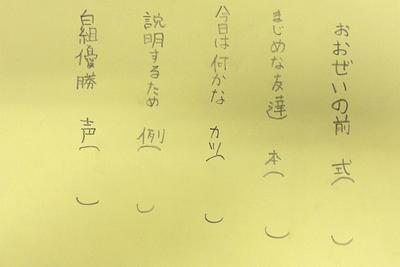 おおぜいの前 式( )
まじめな友達 本( )
今日は付かな カツ( )
説明するため 例( )
白組優勝 声( )